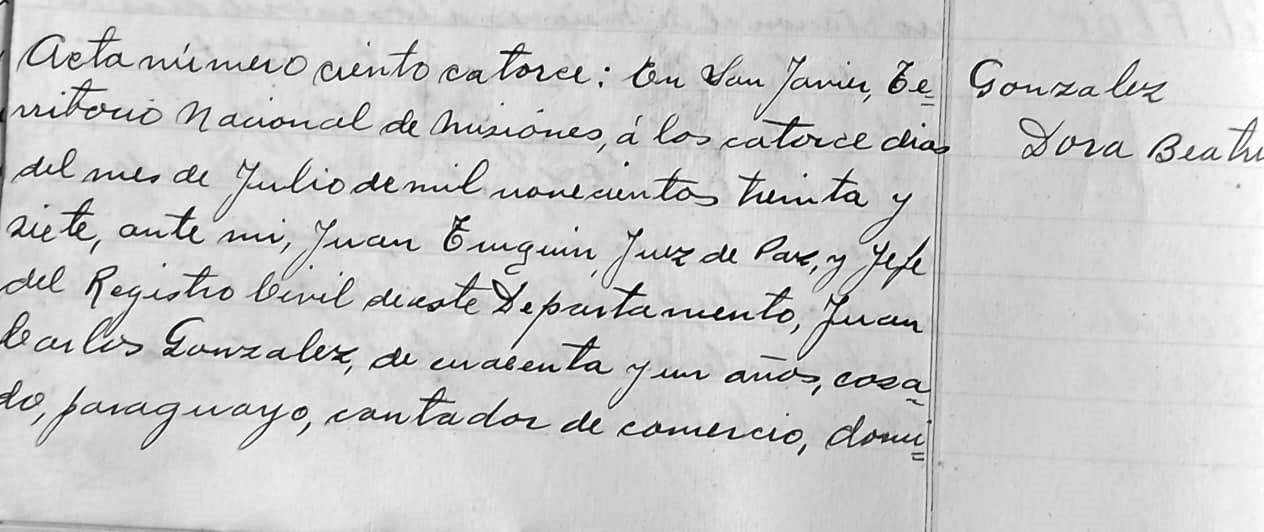 Acta número ciento catorce: En San Javier, Te=
rritorio Nacional de Misiones, á los catorce dias
del mes de Julio de mil novecientos treinta y
siete, ante mi, Juan Juez de Paz, y Jefe
del Registro Civil de este Departamento, Juan
Carlos Gonzalez, de cuarenta y un años, casa=
do, paraguayo, contador de comercio, domi=
Gonzalez
Dora Beatri